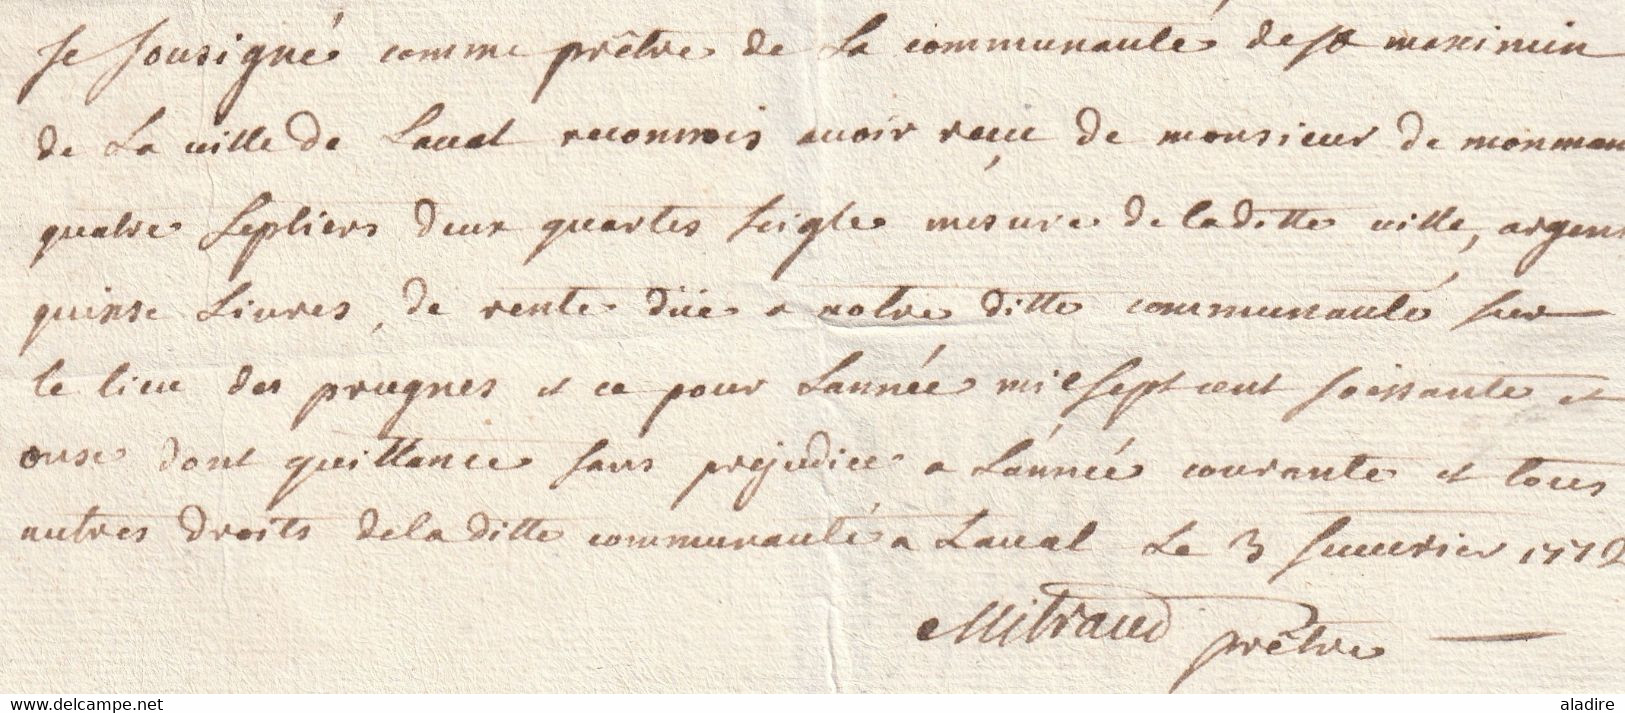 Je sousigné comme prêtre de La communauté de st maximin
de La ville de Laval reconnois avoir reçu de monsieur de monman
quatre septiers deux quartes seigle mesure de laditte ville, argent
quinse Livres, de rente düe a notre ditte communauté sur
le lieu des prugnes et ce pour L'année mil sept cent soissante et
onse dont quittance sans prejudice a L'année courante et tous
autres droits de la ditte communauté a Laval Le 3 Janvrier 1772
Mitraud prêtre
www.delcampe.net
aladire